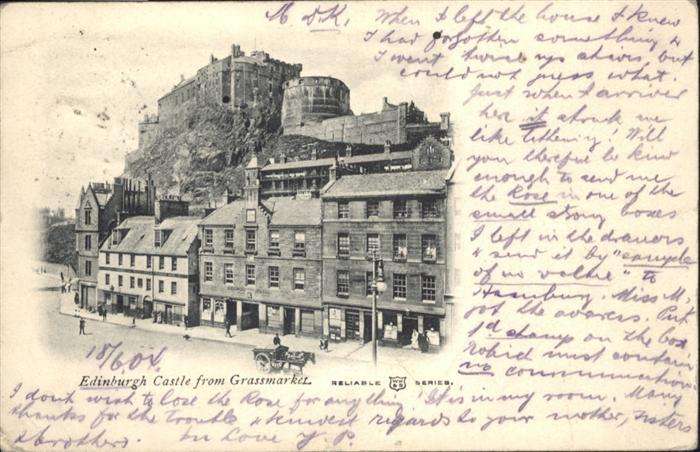 M dK, When I left the house I knew
I had forgotten something &
I went twice up stairs but
could not guess what.
Just when I arrived
here it struck me
like lightening! Will
you therefore be kind
enough to send me
the Rose in one of the
small strong boxes
I left in the drawers
& send it by "sample
of no value" to
Hamburg. Miss M.
got the address. Put
1d stamp on the box
which must contain
no communication
18/6.04
Edinburgh Castle from Grassmarket. RELIABLE SERIES.
I dont wish to lose the Rose for anything! It is in my room. Many
thanks for the trouble & kindest regards to your mother, sisters
& brothers. In Love Y. P.